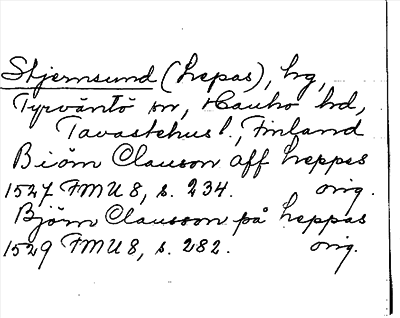 Stjernsund (Lepas), hg,
Tyrväntö sn, Hauho hd,
Tavastehus l., Finland
Biörn Clauson aff Leppes
1527 FMU 8, s. 234. orig.
Björn Clausson på Leppas
1529 FMU 8, s. 282. orig.